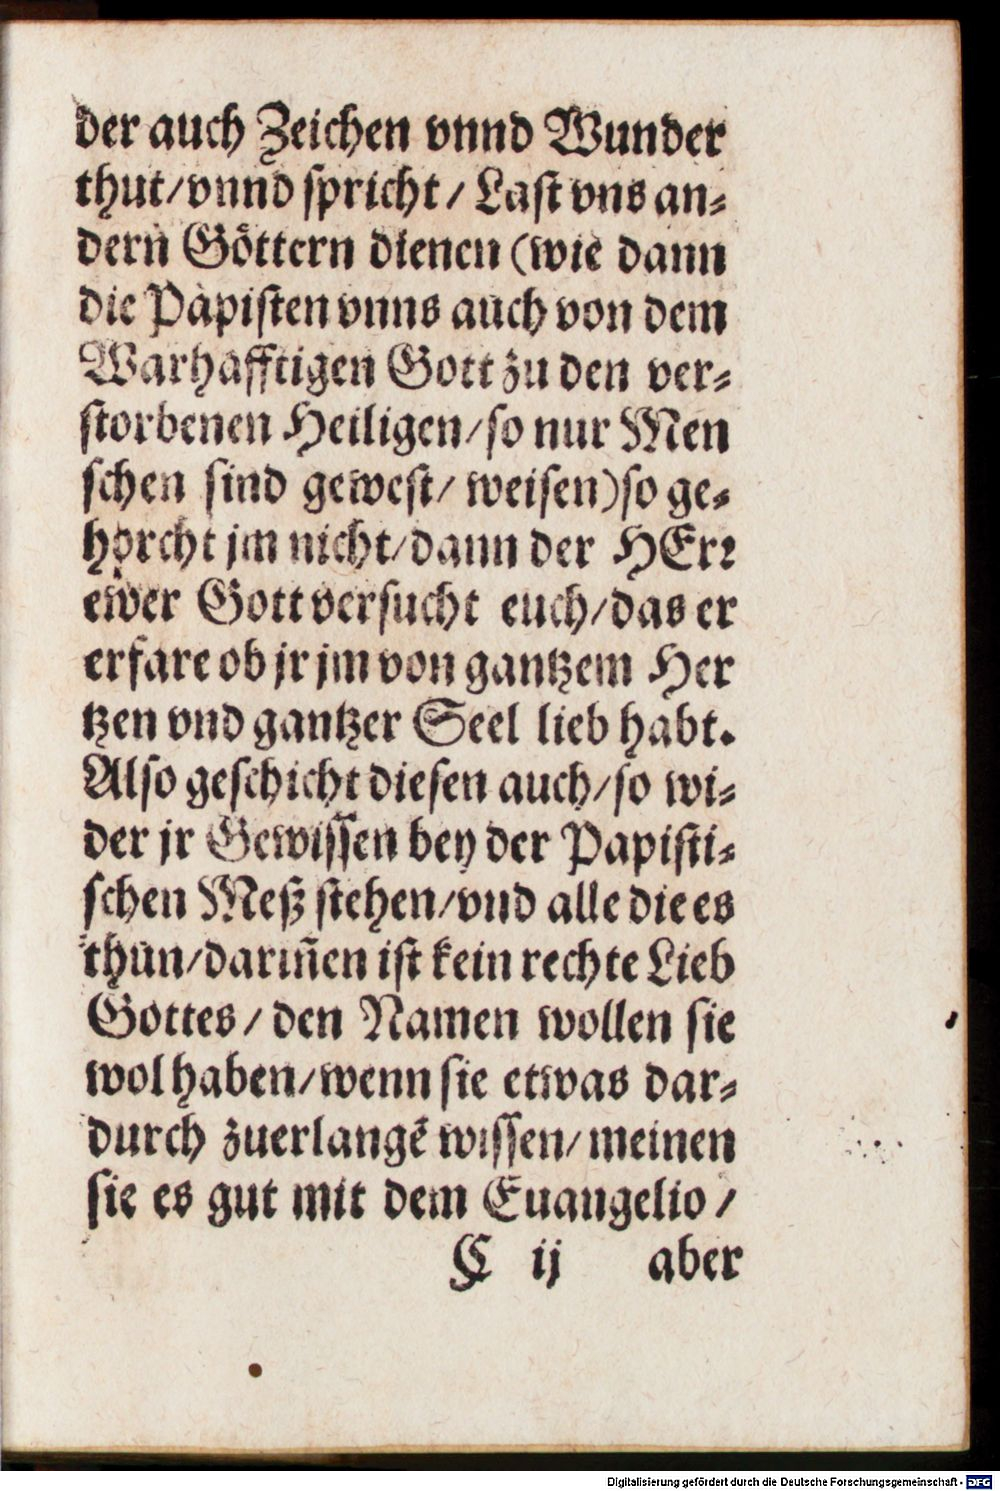 der auch Zeichen vnnd Wunder
thut/vnnd spricht/ Last vns an⸗
dern Göttern dienen (wie dann
die Papisten vnns auch von dem
Warhafftigen Gott zu den ver⸗
storbenen Heiligen/so nur Men
schen sind gewest/ weisen)so ge⸗
horcht jm nicht/dann der HErr
ewer Gott versucht euch/das er
erfare ob jr jm von gantzem Her
tzen vnd gantzer Seel lieb habt.
Also geschicht diesen auch/so wi⸗
der jr Gewissen bey der Papisti⸗
schen Meß stehen/vnd alle die es
thun/dariñen ist kein rechte Lieb
Gottes/ den Namen wollen sie
wol haben/wenn sie etwas dar⸗
durch zuerlangē wissen/ meinen
sie es gut mit dem Euangelio /
C ij aber
Digitalisierung gefördert durch die Deutsche Forschungsgemeinschaft - DFG